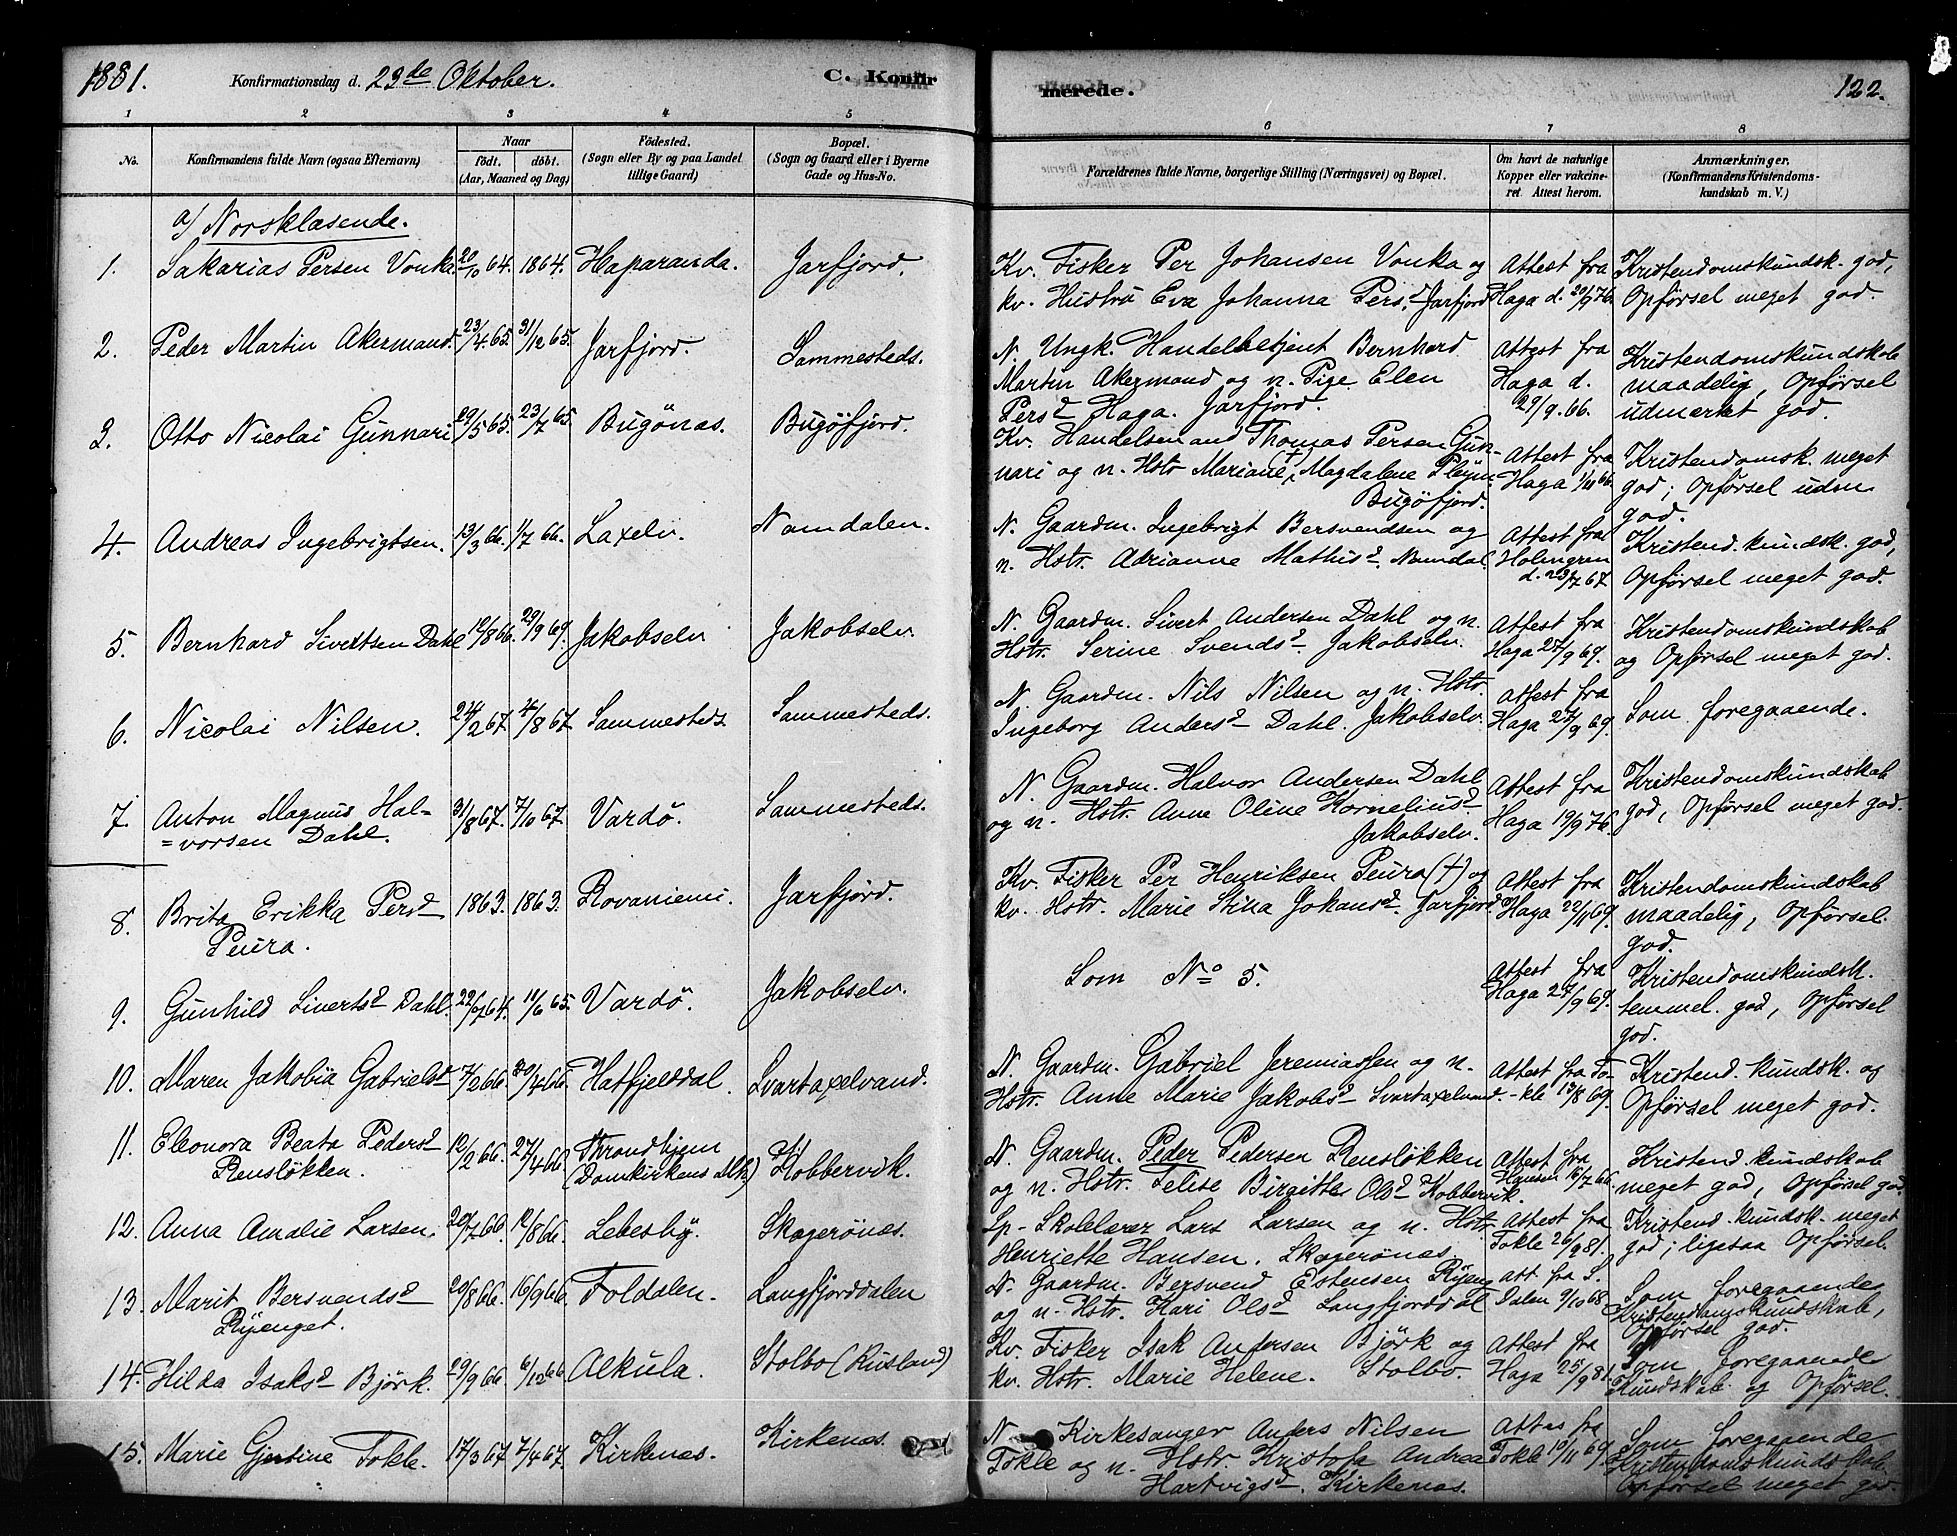 1881. Konfirmationsdag d. 23de Oktober. C. Konfir
merede. 122.
1 2 3 4 5 6 7 8
No. Konfirmandens fulde Navn (ogsaa Efternavn) Naar født. døbt. (Aar, Maaned og Dag) Fødested. (Sogn eller By og paa Landet tillige Gaard) Bopæl. (Sogn og Gaard eller i Byerne Gade og Hus-No.
Forældrenes fulde Navne, borgerlige Stilling (Næringsvei) og Bopæl. Om havt de naturlige Kopper eller vakcineret. Attest herom. Anmærkninger. (Konfirmandens Kristendomskundskab m. V.)
a) Norsklæsende.
1. Sakarias Persen Vonka. 20/10 64. 1864. Haparanda. Jarfjord.
Kv. Fisker Per Johansen Vonka og
kv. Hustru Eva Johanna Persd. Jarfjord
Attest fra
Haga d. 20/9 76.
Kristendomskundsk. god,
Opførsel meget god.
2. Peder Martin Akermand. 23/4 65. 31/12 65. Jarfjord. Sammesteds.
N. Ungk. Handelsbetjent Bernhard
Martin Akermand og n. Pige Elen
Persd Haga. Jarfjord.
Attest fra
Haga d.
29/9. 66.
Kristendomskundskab
maadelig, Opførsel
udmærket god.
3. Otto Nicolai Gunnari 29/5 65. 23/7 65. Bugönæs. Bugöfjord.
Kv. Handelsmand Thomas Persen Gun-
nari og n. Hstr Mariane (+) Magdalene
Bugöfjord.
Attest fra
Haga 1/11 66.
Kristendomsk. meget
god; Opførsel uden
god.
4. Andreas Ingebrigtsen. 13/3 66. 1/7 66. Laxelv. Namdalen.
N. Gaardm. Ingebrigt Bersvendsen og
n. Hstr. Adrianne Mathisd. Namdal.
Attest fra
Holmgren
d. 23/7 67.
Kristend. kundsk. god,
Opførsel meget god.
5. Bernhard Sivertsen Dahl 10/8 66. 29/9 69. Jakobselv Jakobselv
N. Gaardm. Sivert Andersen Dahl og n.
Hstr. Serine Svendsd. Jakobselv.
Attest fra
Haga 27/9 69.
Kristendomskundskab
og Opførsel meget god.
6. Nicolai Nilsen. 24/2 67. 4/8 67 Sammesteds. Sammesteds.
N. Gaardm. Nils Nilsen og n. Hstr.
Ingeborg Andersd Dahl. Jakobselv
Attest fra
Haga 27/9 69.
Som foregaaende.
7. Anton Magnus Hal=
=vorsen Dahl. 31/8 67. 7/10 67. Vardö. Sammesteds.
N. Gaardm. Halvor Andersen Dahl
og n. Hstr. Anne Oline Korneliusd
Jakobselv.
Attest fra
Haga 19/9 76.
Kristendomskundskab
god, Opførsel meget god.
8. Brita Erikka Persd
Peura. 1863. 1863. Rovaniemi. Jarfjord.
Kv. Fisker Per Henriksen Peura (+) og
kv. Hstr. Marie Stina Johansd. Jarfjord.
Attest fra
Haga 22/11 69.
Kristendomskundskab
maadelig, Opførsel.
god.
9. Gunhild Sivertsd Dahl. 22/10 64. 11/6 65. Vardö. Jakobselv.
Som No 5.
Attest fra
Haga 27/9 69.
Kristendomskundsk.
temmel. god, Opførsel
god.
10. Maren Jakobia Gabrielsd 7/2 66. 30/4 66. Hatfjelddal. Svartaxelvand.
N. Gaardm. Gabriel Jeremiassen og n.
Hstr. Anne Marie Jakobsd Svartaxelvand.
Attest fra To-
kle 13/8 69.
Kristend. kundsk. og
Opførsel meget god.
11. Eleonora Beata Pedersd
Rensløkken. 12/2 66. 27/4 66. Throndhjem
(Domkirkens ) Kobbervik.
N. Gaardm. Peder Pedersen Rensløkken
og n. Hstr. Felise Birgitte Olsd Kobbervik.
Attest fra
Hansen 16/7 66.
Kristend. kundskab
meget god, Opførsel god.
12. Anna Amalie Larsen. 20/7 66. 12/8 66. Lebesby. Skogerönæs.
Lp. Skolelærer Lars Larsen og n. Hstr.
Henriette Hansen. Skogerönæs.
Attest fra
Tokle 26/9 81.
Kristend. kundsk. meget
god; ligesaa Opførsel.
13. Marit Bersvendsd
Ryenget. 20/8 66. 16/9 66. Foldalen. Langfjorddalen
N. Gaardm. Bersvend Estensen Ryeng
og n. Hstr. Kari Olsd Langfjorddal
Att. fra S.
Dalen 9/10 68.
Som foregaaende
Kristendomskundskab,
Opførsel god.
14. Hilda Isaksd Björk. 29/9 66. 6/12 66. Alkula. Stolbo (Rusland)
Kv. Fisker Isak Andersen Björk og
kv. Hstr. Marie Helene. Stolbo.
Attest fra
Haga 25/9 81.
Som foregaaende
Kundskab og Opførsel.
15. Marie Gjertine Tokle. 17/3 67. 7/4 67. Kirkenæs. Kirkenæs.
N. Kirkesanger Anders Nilsen
Tokle og n. Hstr. Kristofa Andrea
Hartvigsd. Kirkenæs.
Attes fra
Tokle 10/11 69.
Som foregaaende
Kristendomskundskab
Opførsel meget god.